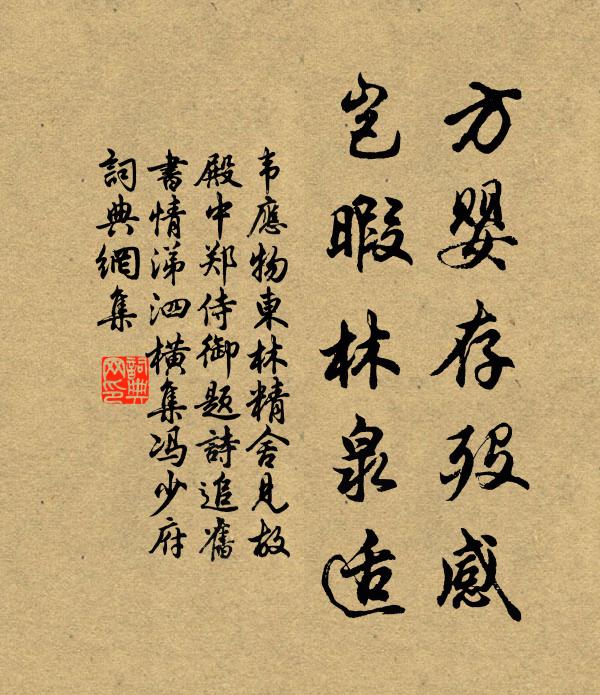 方婴存殁感
岂暇林泉适
韦應物東林精舍見故
殿中郑侍御题詩追舊
書情涕泗横集冯少府
詞典網集
詞典
网印